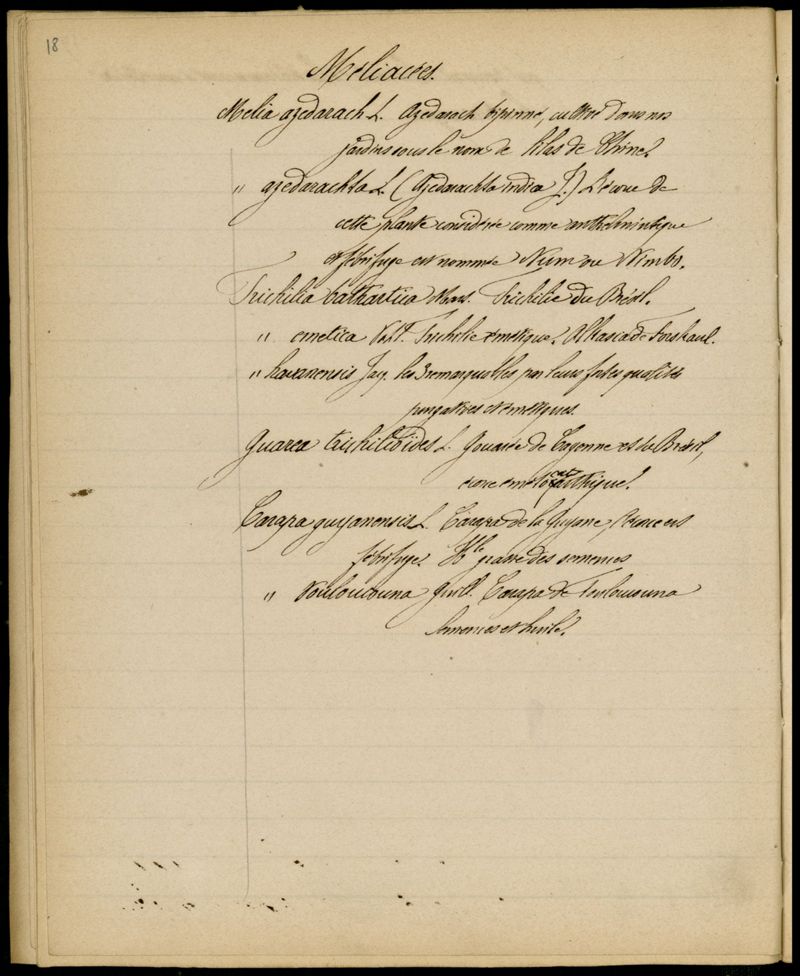 18
Méliacées.
Melia azedarach L. Azedarach bipinné, cultivé dans nos
jardins sous le nom de lilas de Chine.
" azedarachta L. (Azedarachta indica J.) L'écorce de
cette plante considérée comme anthelmintique
et fébrifuge est nommée Nim ou Nimbo.
Trichilia cathartica Mart. Trichilie du Brésil.
" emetica Vahl. Trichilie émétique. Elkaja de Forskaul.
" havanensis Jacq. les 3 remarquables par leurs fortes qualités
purgatives et émétiques.
Guarea trichilioides L. Gouarée de Cayenne et du Brésil,
écorce éméto cathartique.
Carapa guyanensis L. Carapa de la Guyane, écorce est
fébrifuge. Hle grasse des semences
" Touloucouna Guill. Carapa de Touloucouna
Semences et huile.